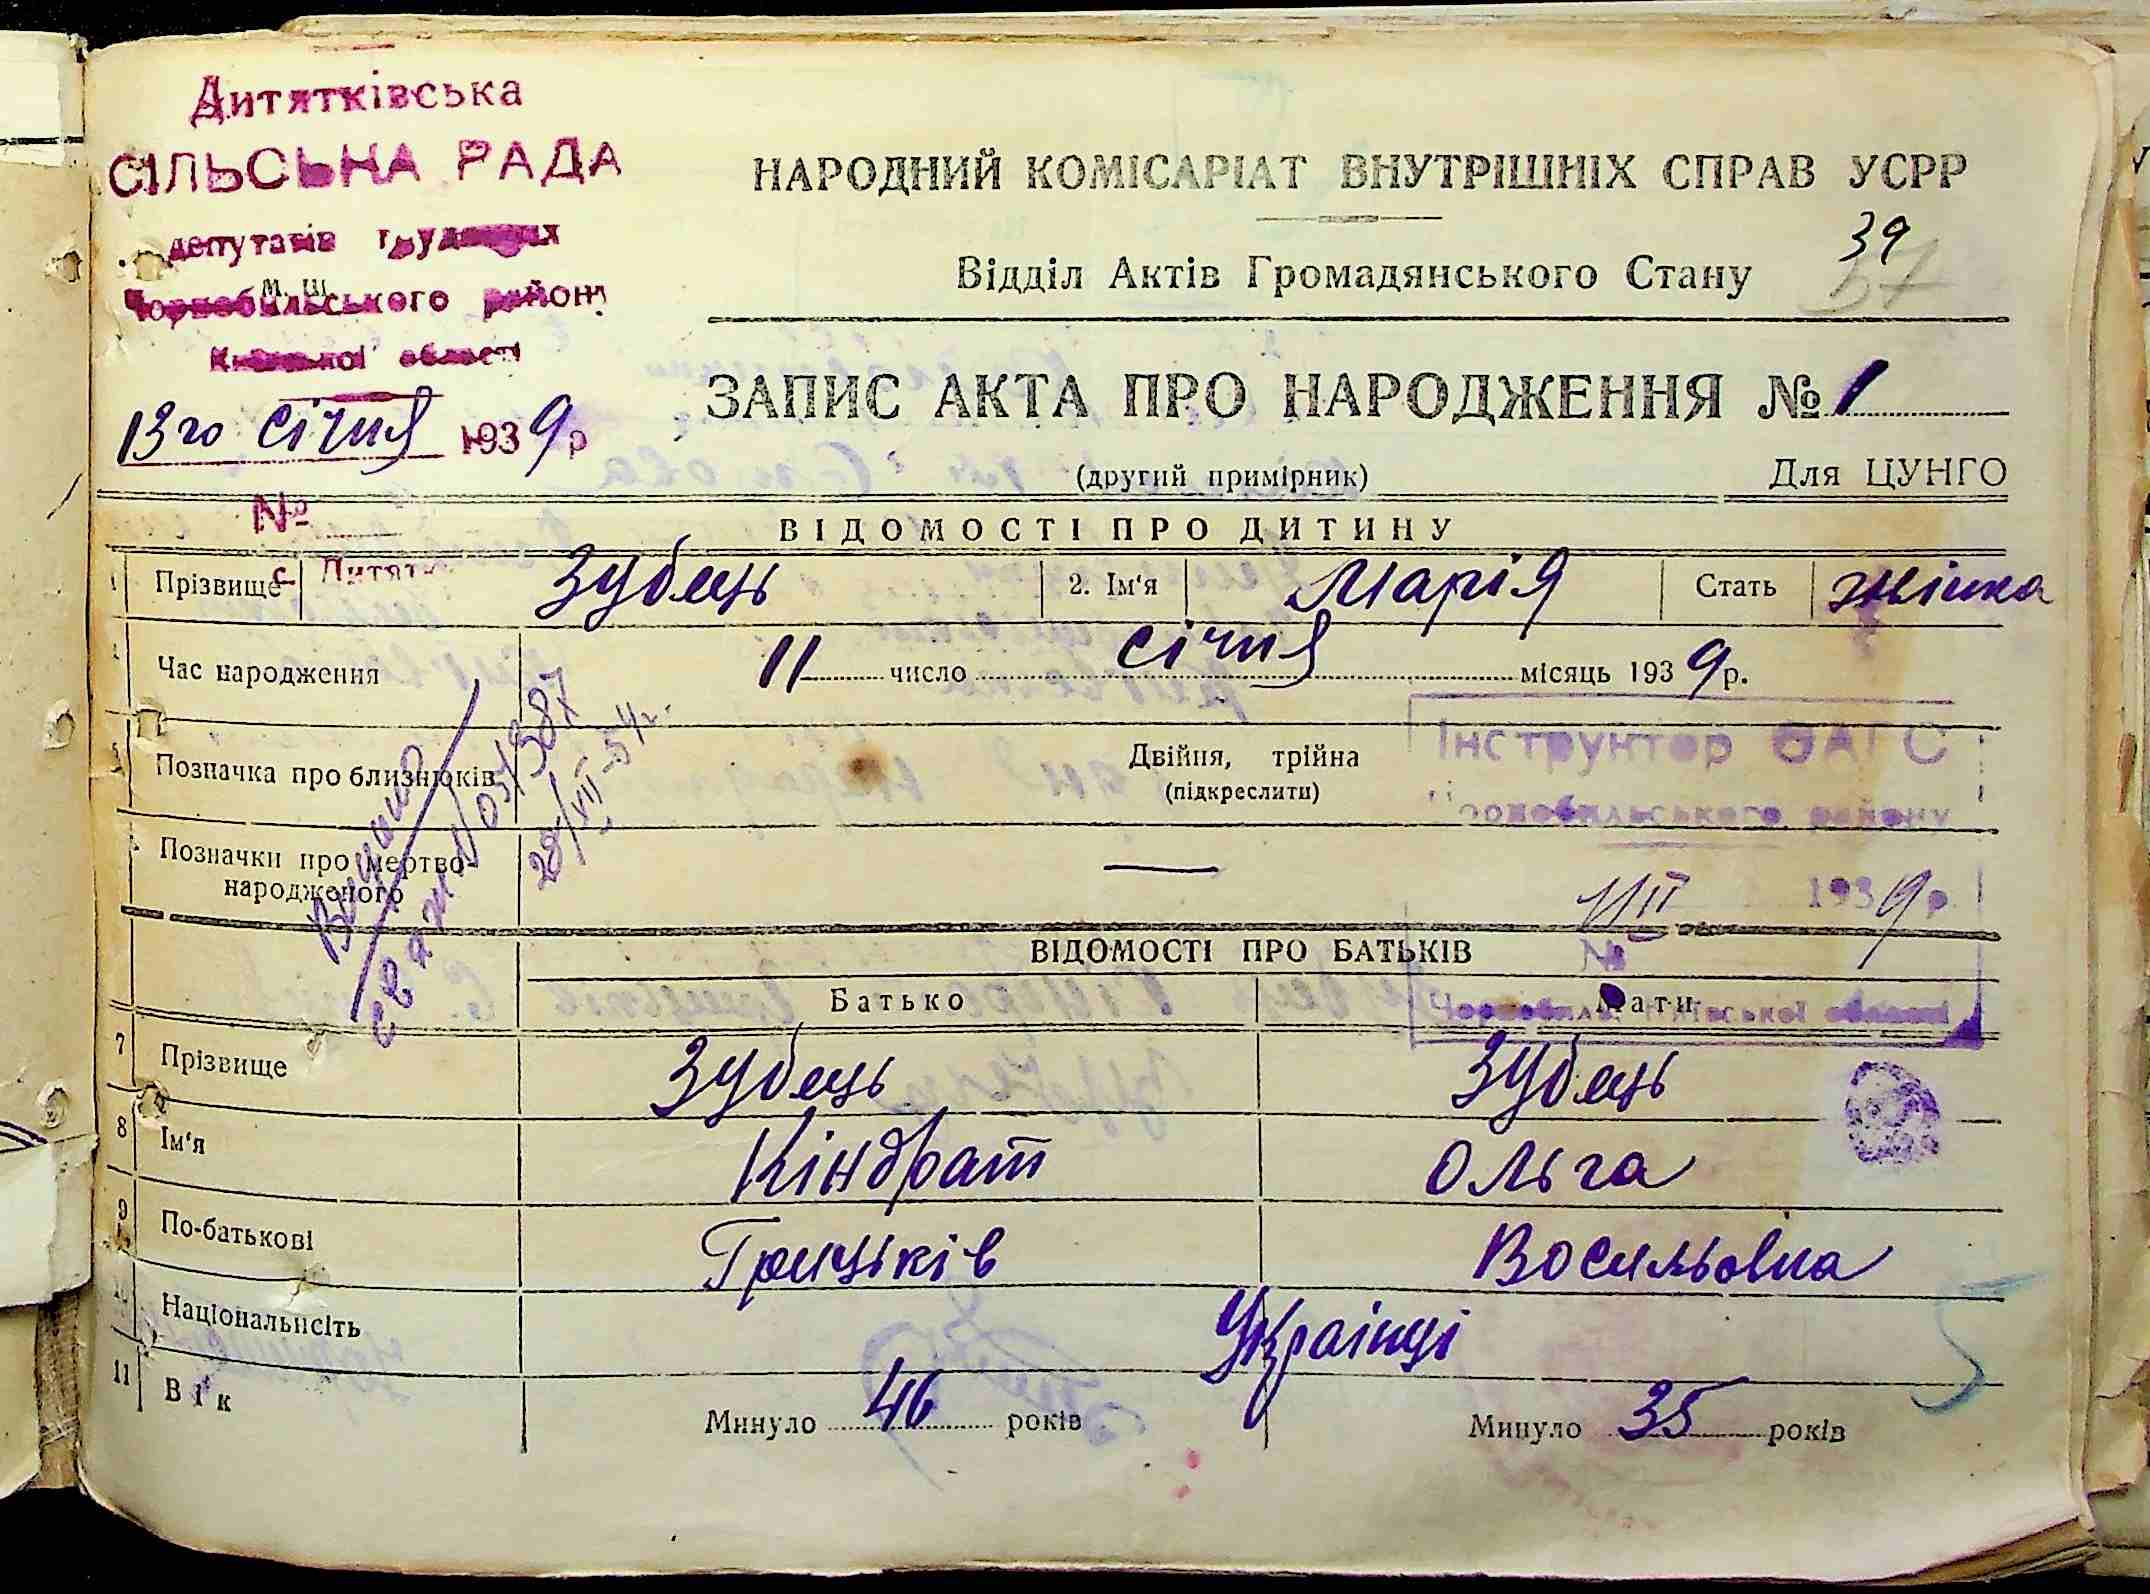 Дитятківська
СІЛЬСЬКА РАДА
депутатів трудящих
м. ш.
Чорнобильського району
Київської області
13го січня 1939 р
№
с. Дитят
НАРОДНИЙ КОМІСАРІАТ ВНУТРІШНІХ СПРАВ УСРР
39
57
Відділ Актів Громадянського Стану
ЗАПИС АКТА ПРО НАРОДЖЕННЯ № 1
(другий примірник) Для ЦУНГО
ВІДОМОСТІ ПРО ДИТИНУ
1 Прізвище Зубець 2. Ім'я Марія Стать жінка
Час народження 11 число січня місяць 1939 р.
5 Позначка про близнюків Двійня, трійна
(підкреслити)
Позначки про мертво-
народженого —
28/VII-54 г.
Інструктор ЗАГС
Чорнобильського району
1939 р.
№
Чорнобиль Київської області
ВІДОМОСТІ ПРО БАТЬКІВ
Батько Мати
7 Прізвище Зубець Зубець
8 Ім'я Кіндрат Ольга
9 По-батькові Грицьків Восильовна
10 Національність Українці
11 Вік Минуло 46 років Минуло 35 років